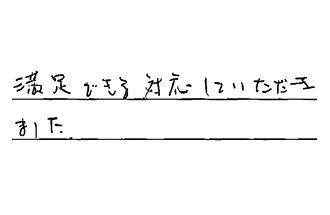 満足できる対応していただき
ました。